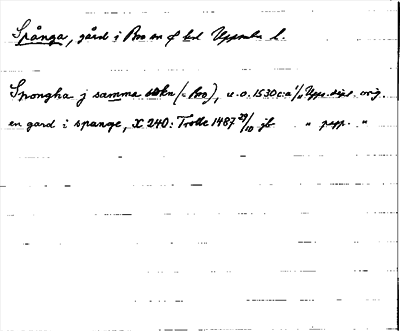 Spånga, gård i Boo sn Uppsala l.
Spongha j samma sokn (= Boo), u.o. 1530 c:a 1/11 Upps. dipl. orig.
en gard i spange, X 240: Trolle 1487 29/10 jb " papp. "